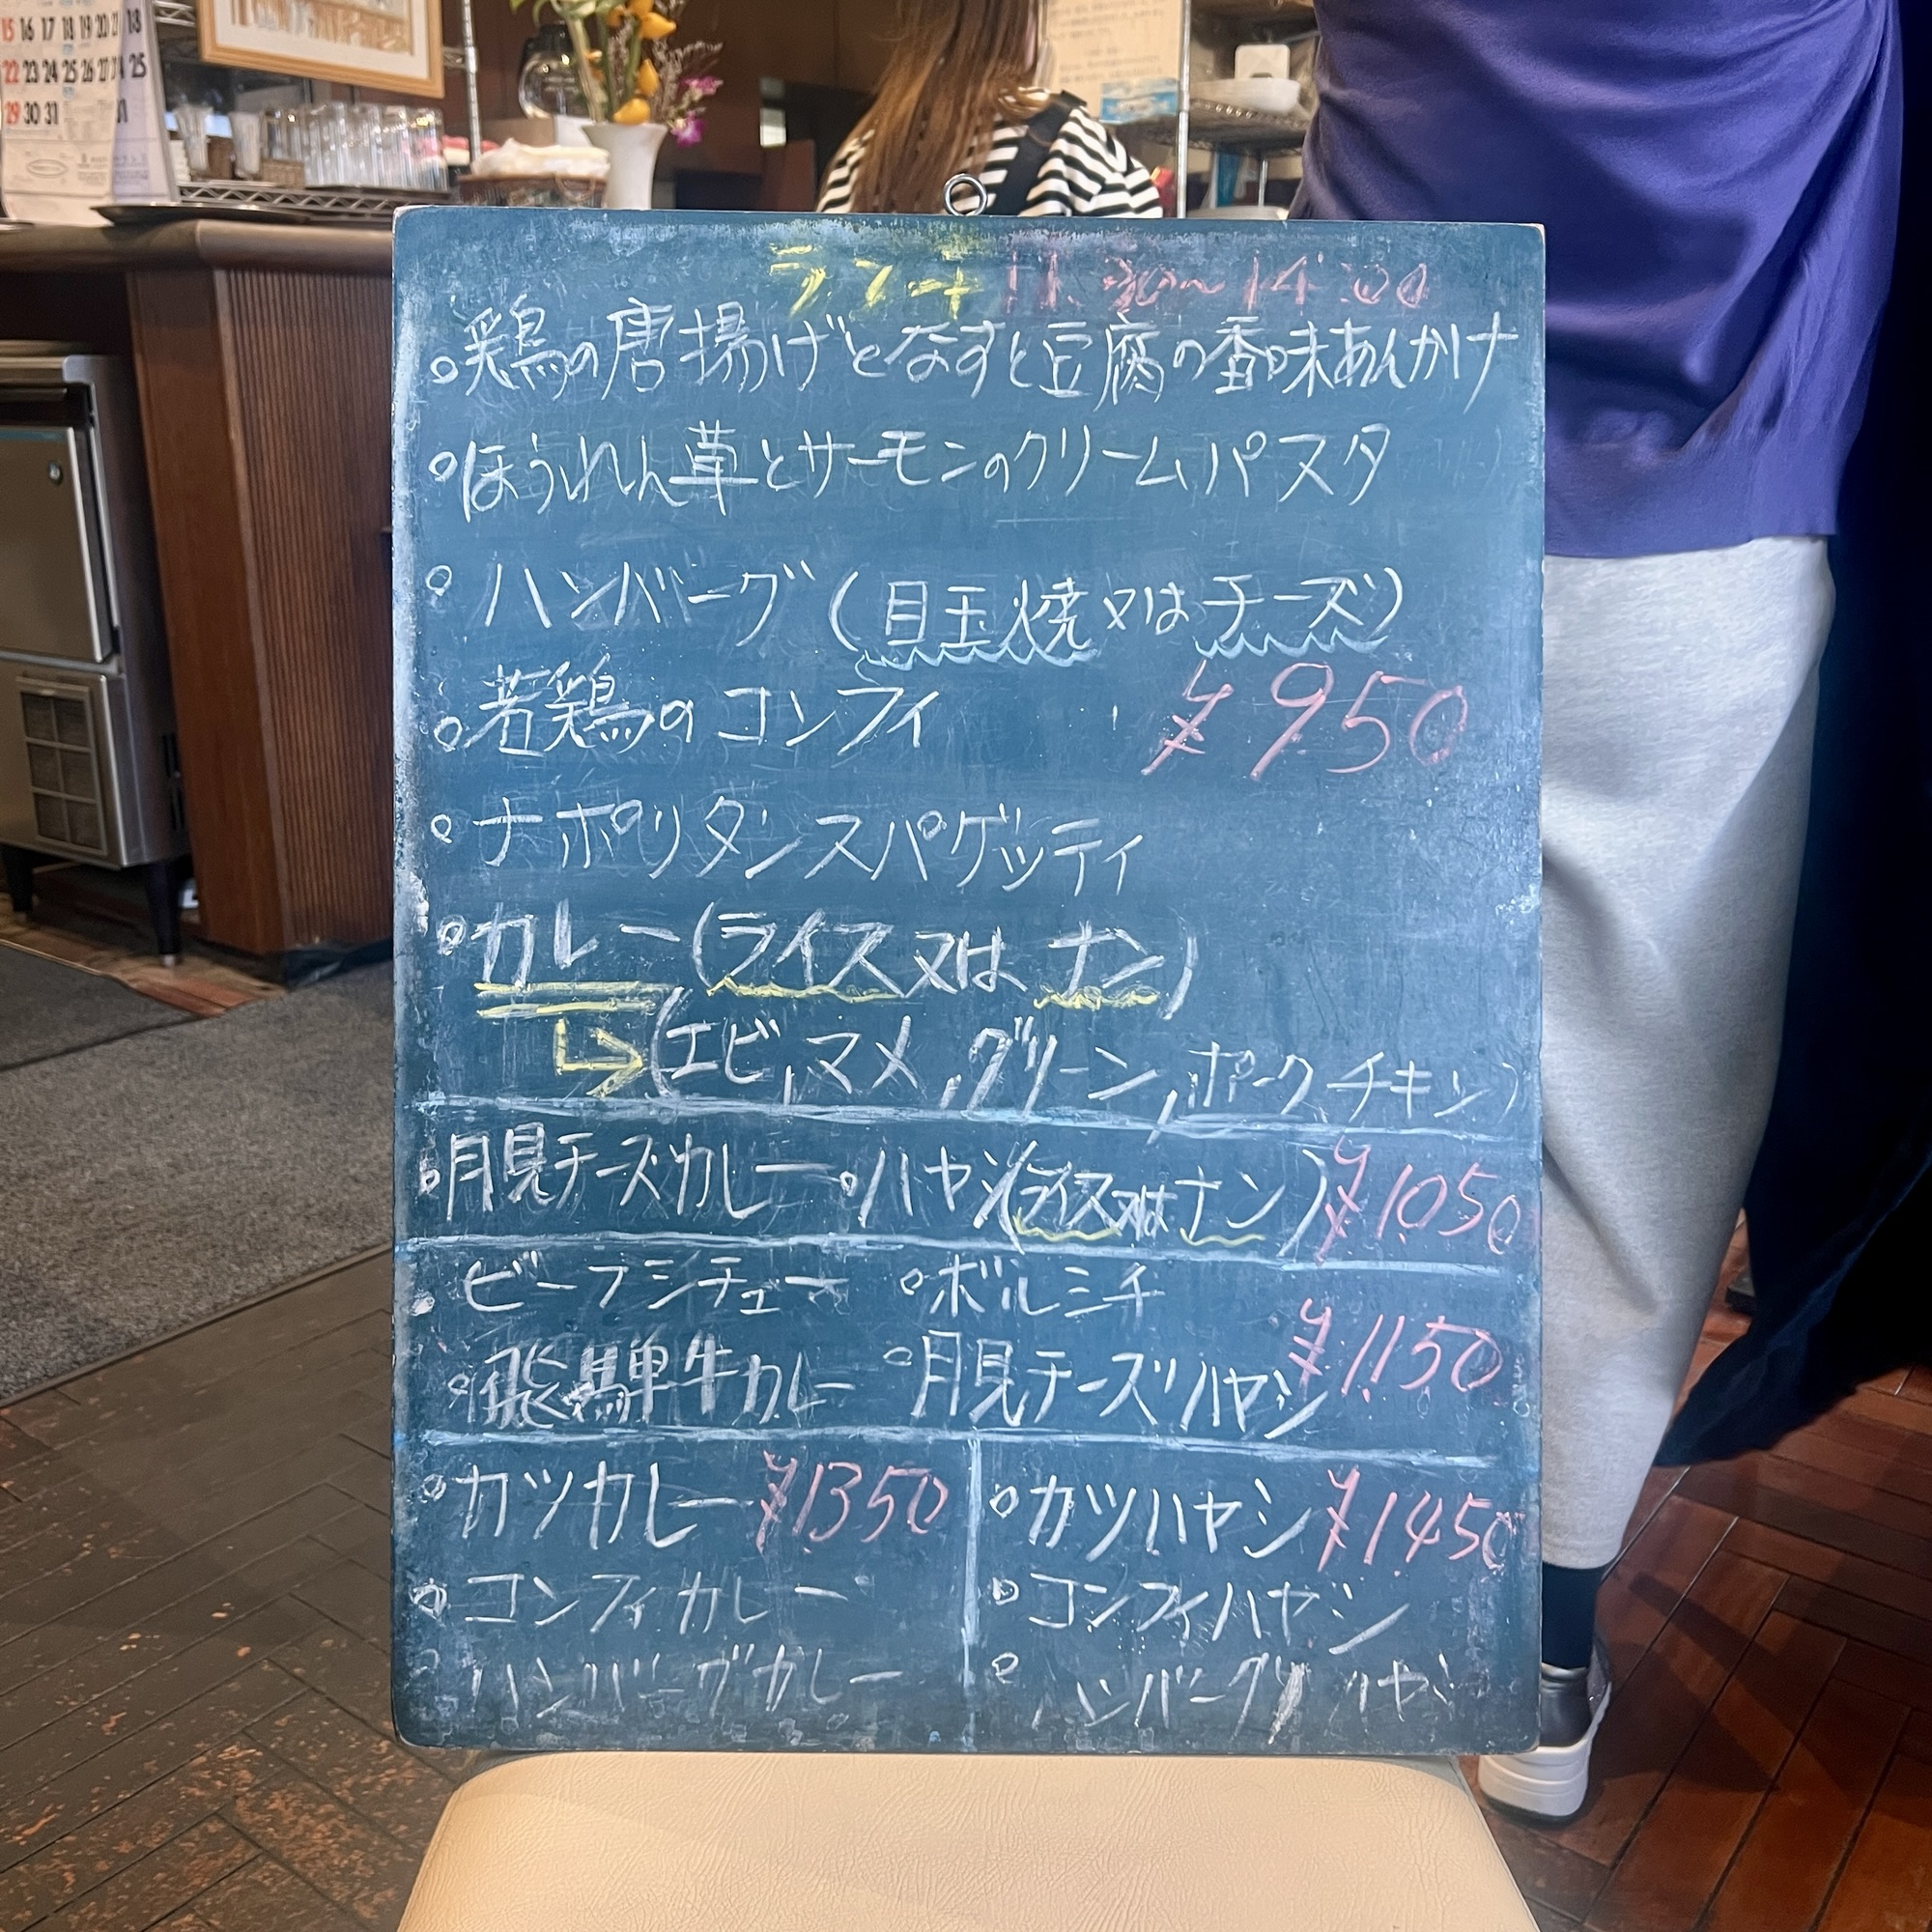 15 16 17 18 19 20 21 18
22 23 24 25 26 27 25
29 30 31 31
ランチ 11:30〜14:00
○鶏の唐揚げとなすと豆腐の香味あんかけ
○ほうれん草とサーモンのクリームパスタ
○ハンバーグ(目玉焼又はチーズ)
○若鶏のコンフィ ¥950
○ナポリタンスパゲッティ
○カレー(ライス又はナン)
↳(エビ,マメ,グリーン,ポーク チキン)
○月見チーズカレー ○ハヤシ(ライス又はナン) ¥1050
○ビーフシチュー ○ボルシチ
○飛騨牛カレー ○月見チーズハヤシ ¥1150
○カツカレー ¥1350 ○カツハヤシ ¥1450
○コンフィカレー ○コンフィハヤシ
○ハンバーグカレー ○ハンバーグハヤシ